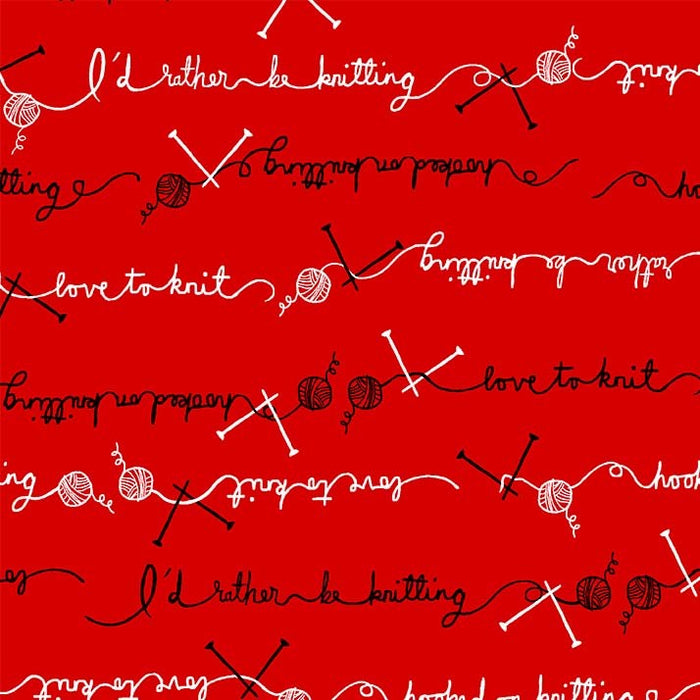 I'd rather be knitting knit
tting hooked on knitting ho
love to knit rather be knitting
hooked on knitting love to knit
ng love to knit hook
lo I'd rather be knitting
love to knit hooked on knitting